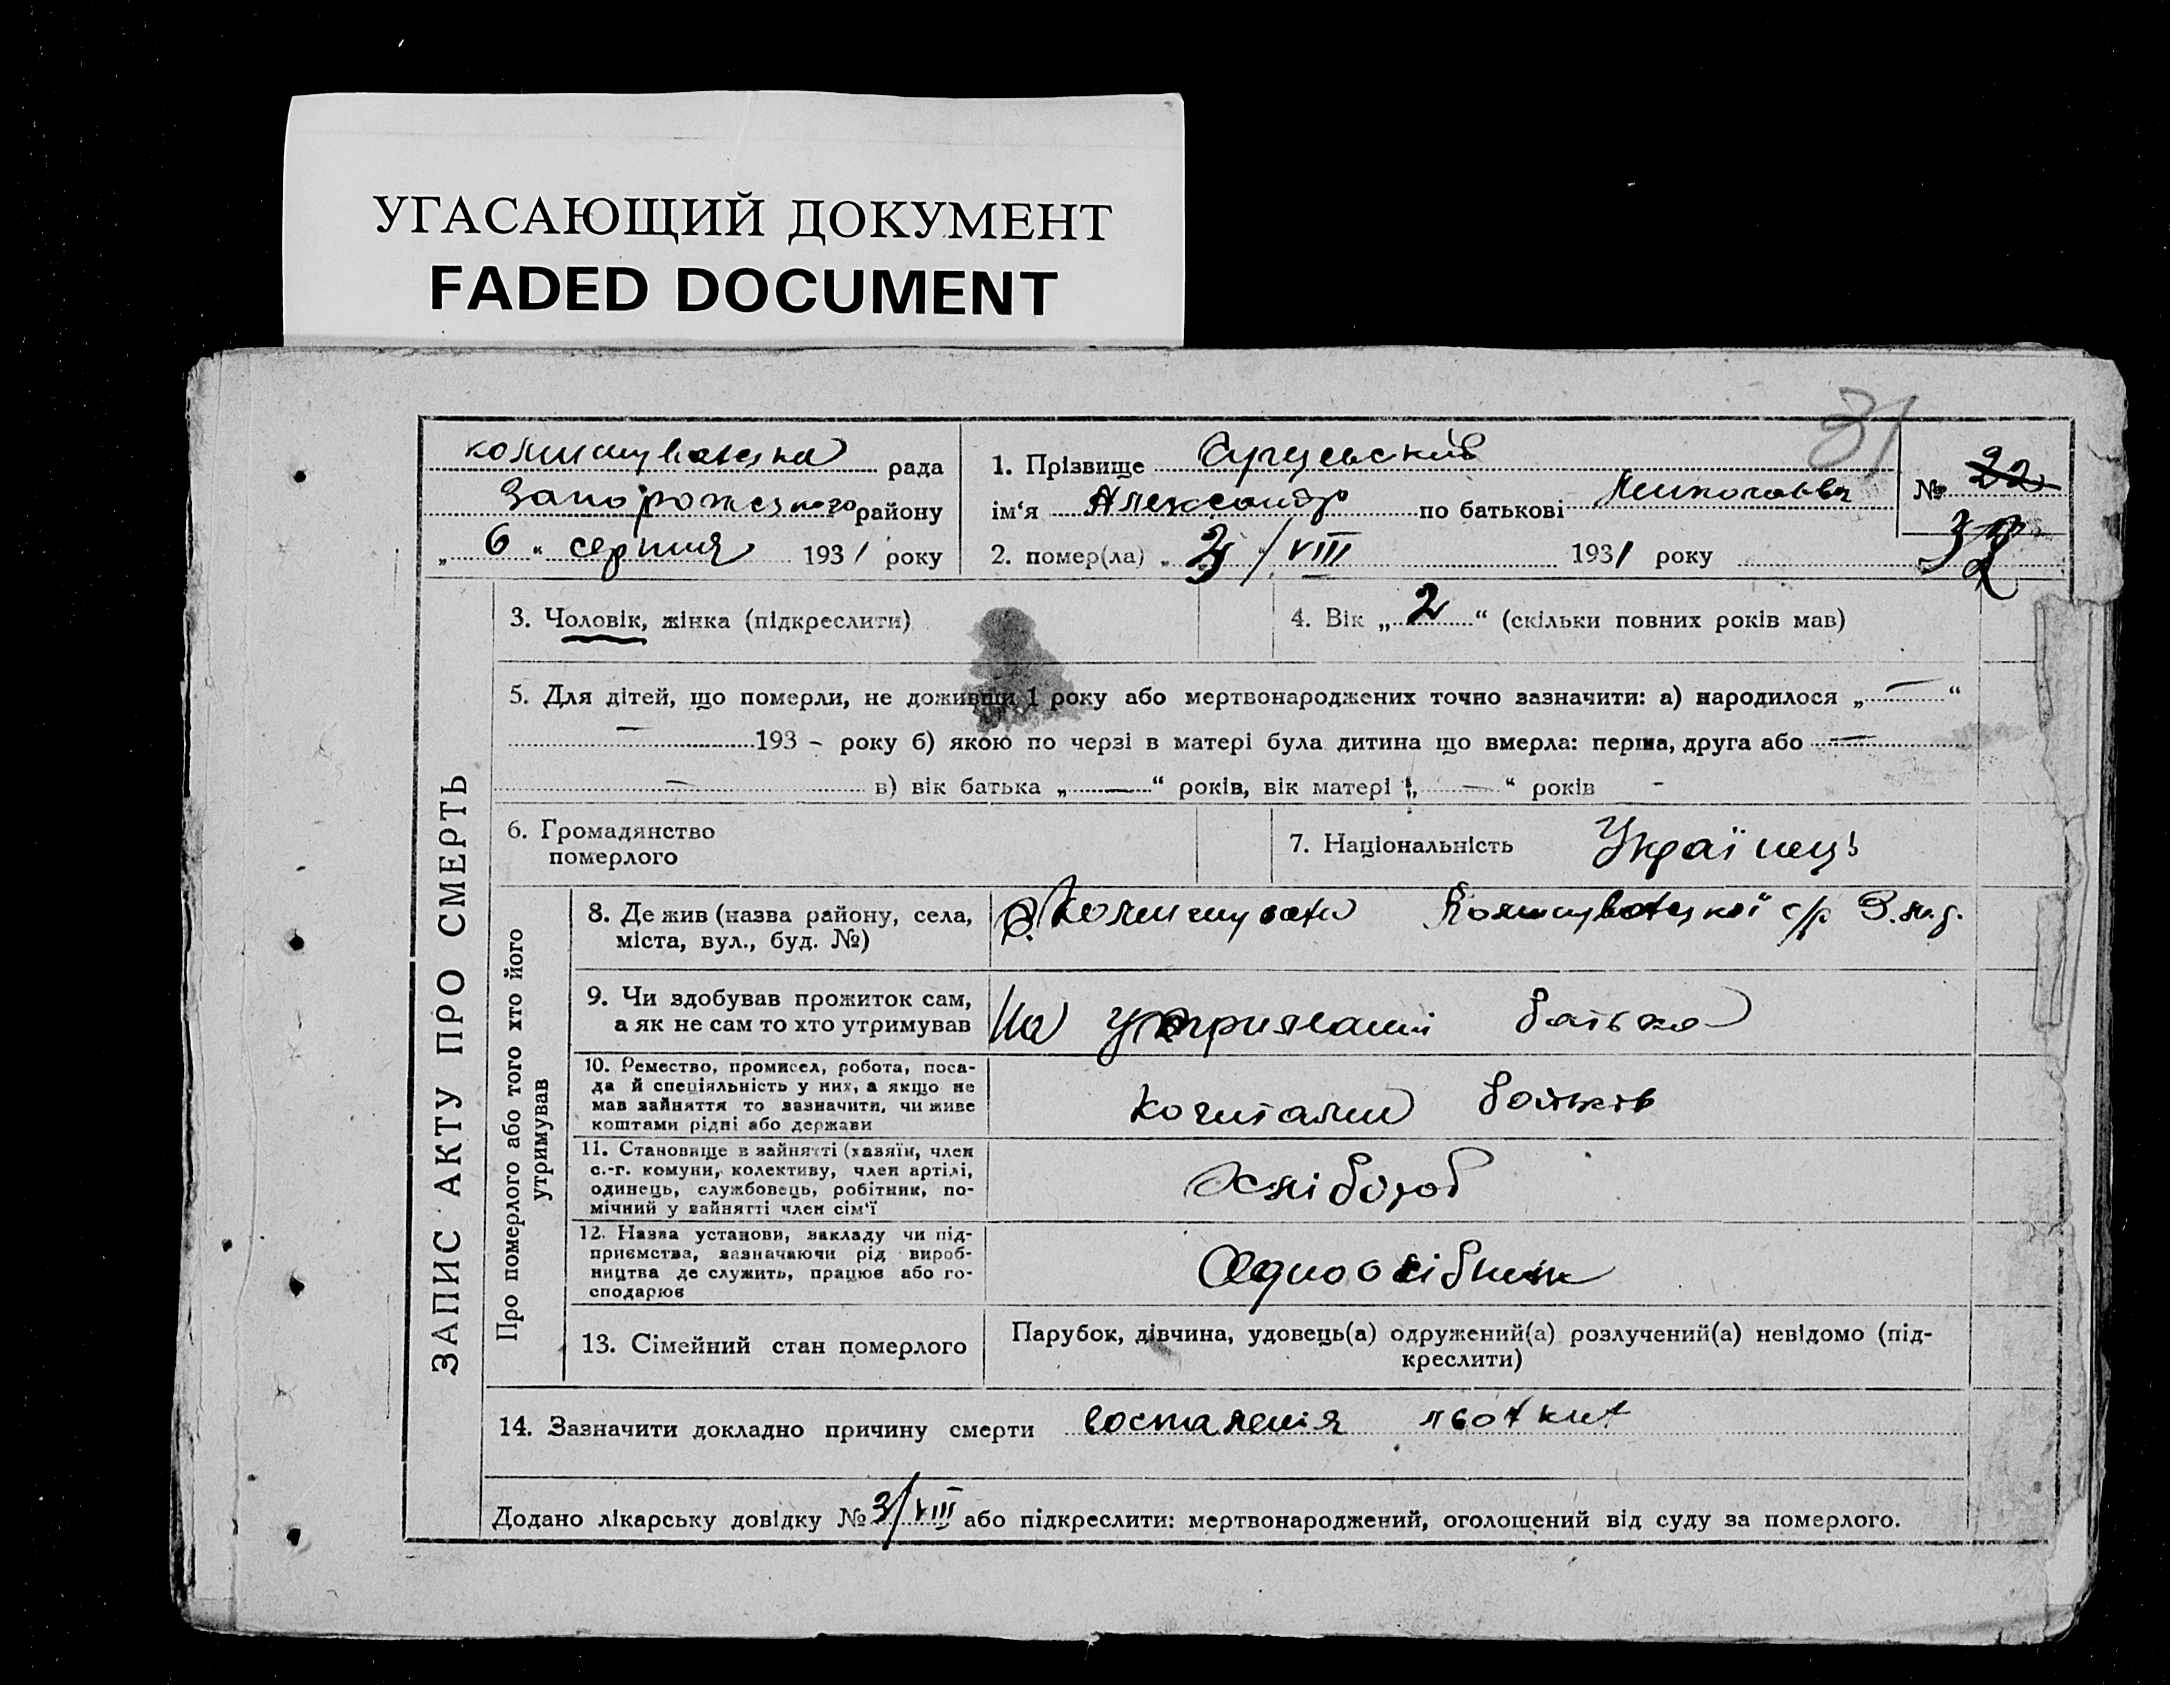 УГАСАЮЩИЙ ДОКУМЕНТ
FADED DOCUMENT
31
комишуватська рада
Запорожського району
„ 6 “ серпня 1931 року
1. Прізвище
ім‘я Александр по батькові
2. помер(ла) „ /VIII 1931 року
№ 22
32
ЗАПИС АКТУ ПРО СМЕРТЬ
3. Чоловік, жінка (підкреслити)
4. Вік „ 2 “ (скільки повних років мав)
5. Для дітей, що померли, не доживши 1 року або мертвонароджених точно зазначити: а) народилося „ — “
— 193 - року б) якою по черзі в матері була дитина що вмерла: перша, друга або —
— в) вік батька „ — “ років, вік матері „ — “ років -
6. Громадянство
померлого
7. Національність Українець
Про померлого або того хто його
утримував
8. Де жив (назва району, села,
міста, вул., буд. №)
Комишувата Комишуватської с/р
9. Чи здобував прожиток сам,
а як не сам то хто утримував
На утриманні батька
10. Ремество, промисел, робота, поса-
да й спеціяльність у них, а якщо не
мав зайняття то зазначити, чи живе
коштами рідні або держави
батьків
11. Становище в зайнятті (хазяїн, член
с.-г. комуни, колективу, член артілі,
одинець, службовець, робітник, по-
мічний у зайнятті член сім‘ї
Хлібороб
12. Назва установи, закладу чи під-
приємства, зазначаючи рід вироб-
ництва де служить, працює або го-
сподарює
Одноосібник
13. Сімейний стан померлого
Парубок, дівчина, удовець(а) одружений(а) розлучений(а) невідомо (під-
креслити)
14. Зазначити докладно причину смерти воспаленія
Додано лікарську довідку № 3/VIII або підкреслити: мертвонароджений, оголошений від суду за померлого.